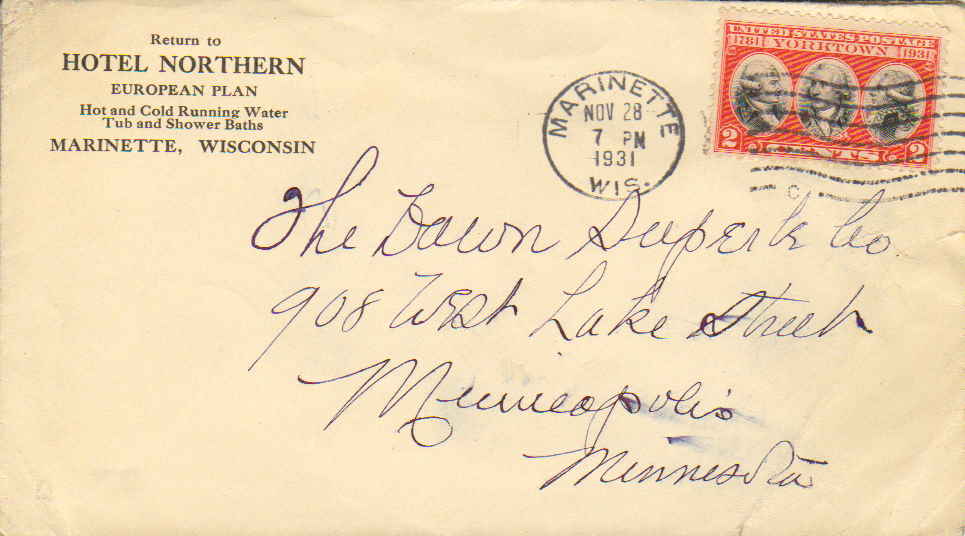 Return to
HOTEL NORTHERN
EUROPEAN PLAN
Hot and Cold Running Water
Tub and Shower Baths
MARINETTE, WISCONSIN
MARINETTE
NOV 28
7 PM
1931
WIS.
UNITED STATES POSTAGE
1781 YORKTOWN 1931
2 CENTS 2
The Dawn Co
908 West Lake Street
Minneapolis
Minnesota